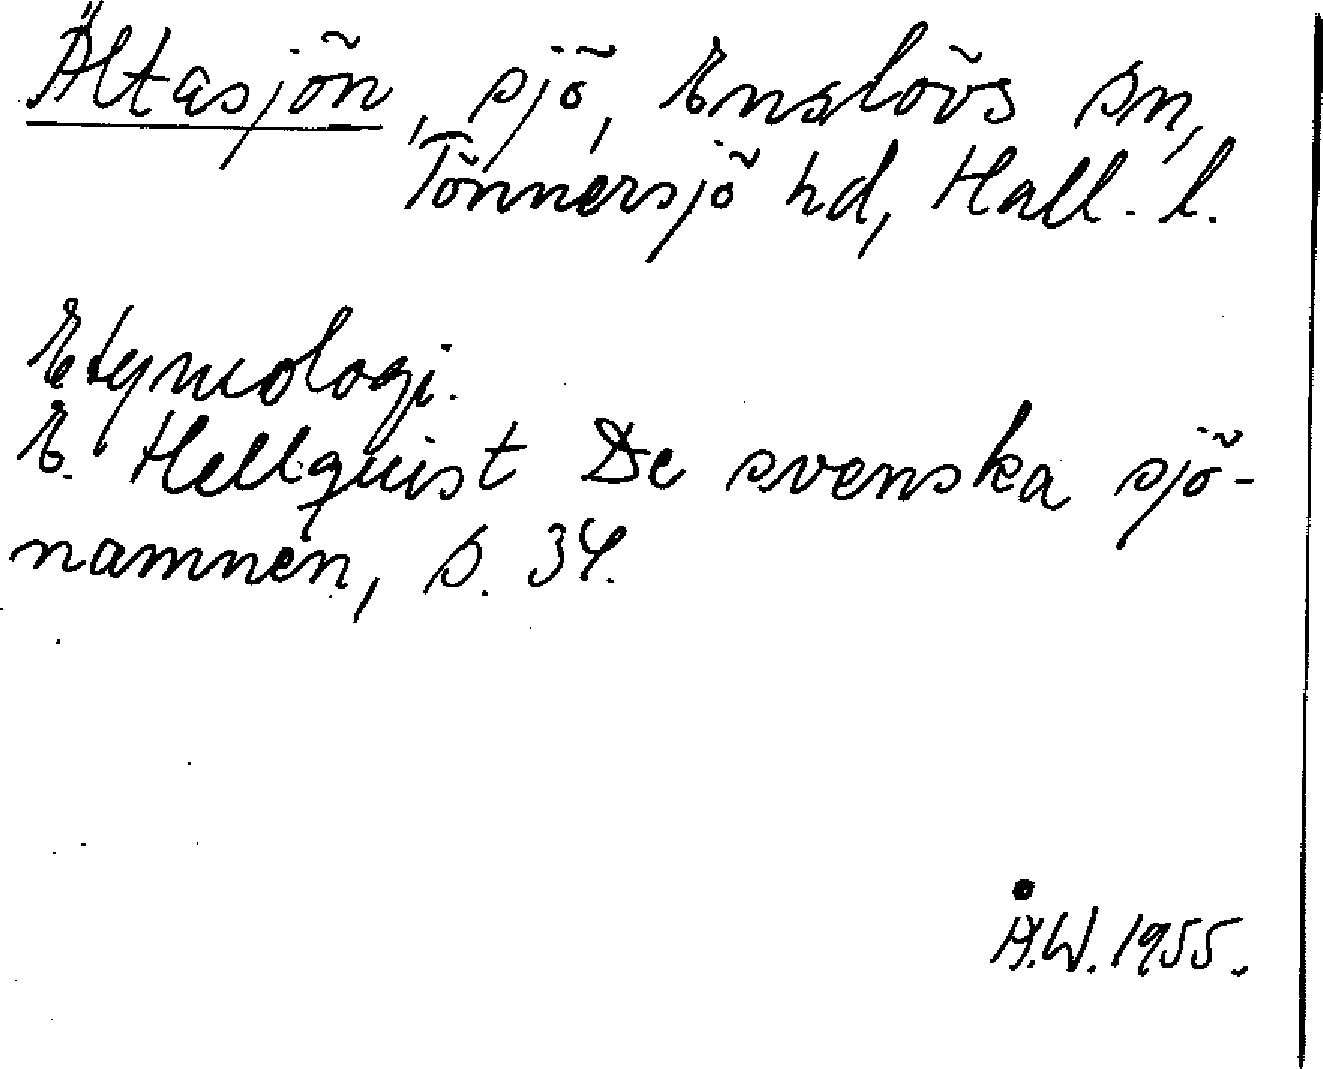 Ältasjön, sjö, Enslövs sn,
Tönnersjö hd, Hall. l.
Etymologi.
E. Hellquist De svenska sjö-
namnen, s. 34.
Å.W. 1955.